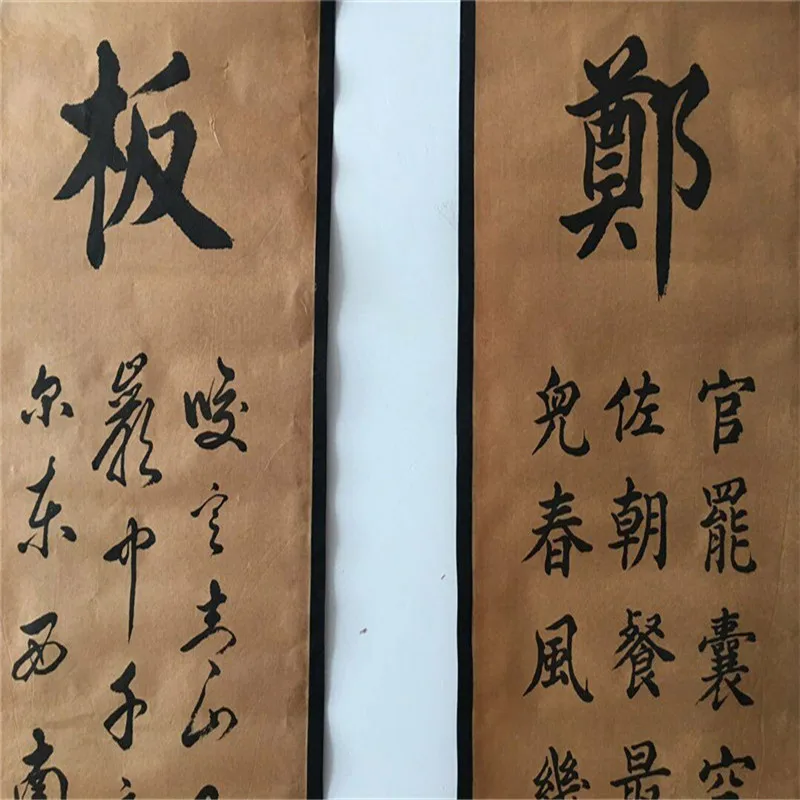 鄭
官罷囊空
佐朝餐最
兒春風幾
板
咬定青山
巖中千
尔东西南